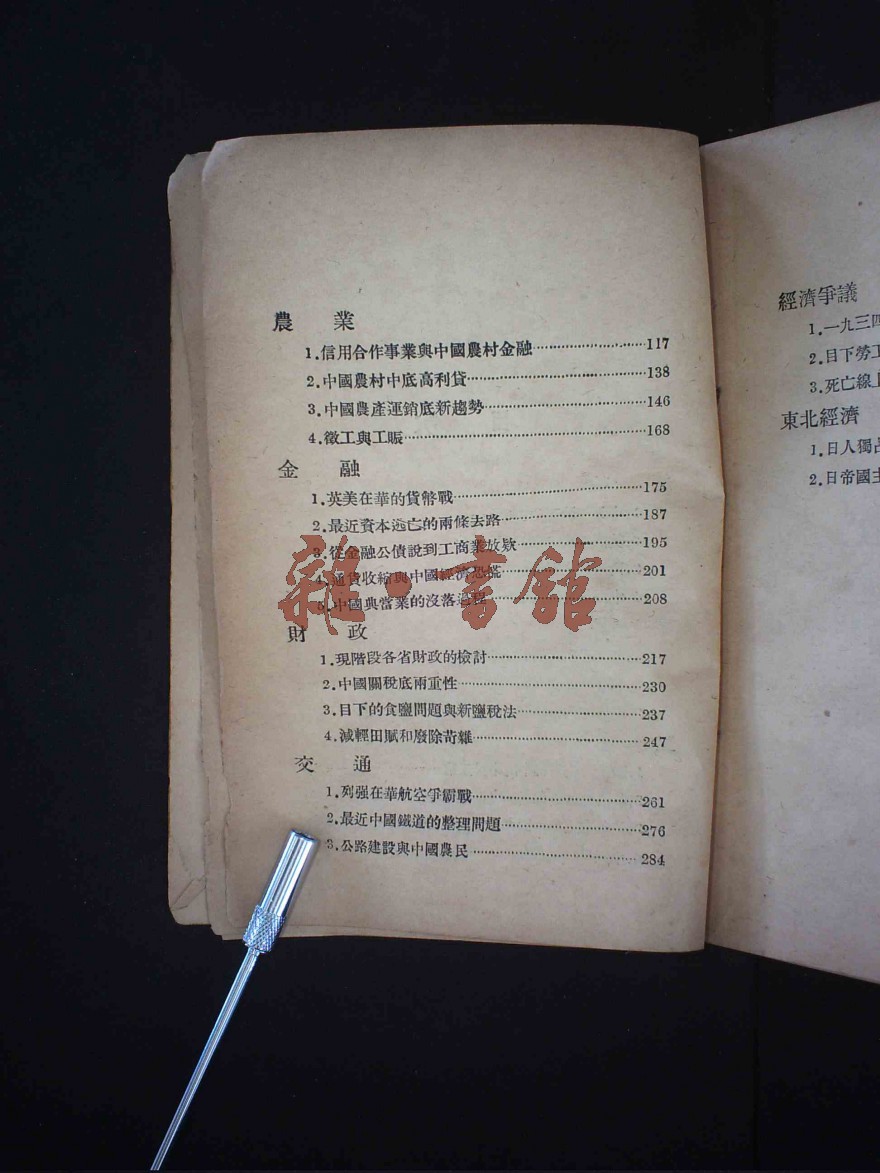 農 業
1.信用合作事業與中國農村金融……117
2.中國農村中底高利貸……138
3.中國農產運銷底新趨勢……146
4.徵工與工賑……168
金 融
1.英美在華的貨幣戰……175
2.最近資本逃亡的兩條去路……187
3.從金融公債說到工商業放欵……195
4.通貨收縮與中國經濟恐慌……201
5.中國典當業的沒落過程……208
財 政
1.現階段各省財政的檢討……217
2.中國關稅底兩重性……230
3.目下的食鹽問題與新鹽稅法……237
4.減輕田賦和廢除苛雜……247
交 通
1.列强在華航空爭霸戰……261
2.最近中國鐵道的整理問題……276
3.公路建設與中國農民……284
經濟爭議
1.一九三四
2.目下勞工
3.死亡線上
東北經濟
1.日人獨占
2.日帝國主
雜·書館